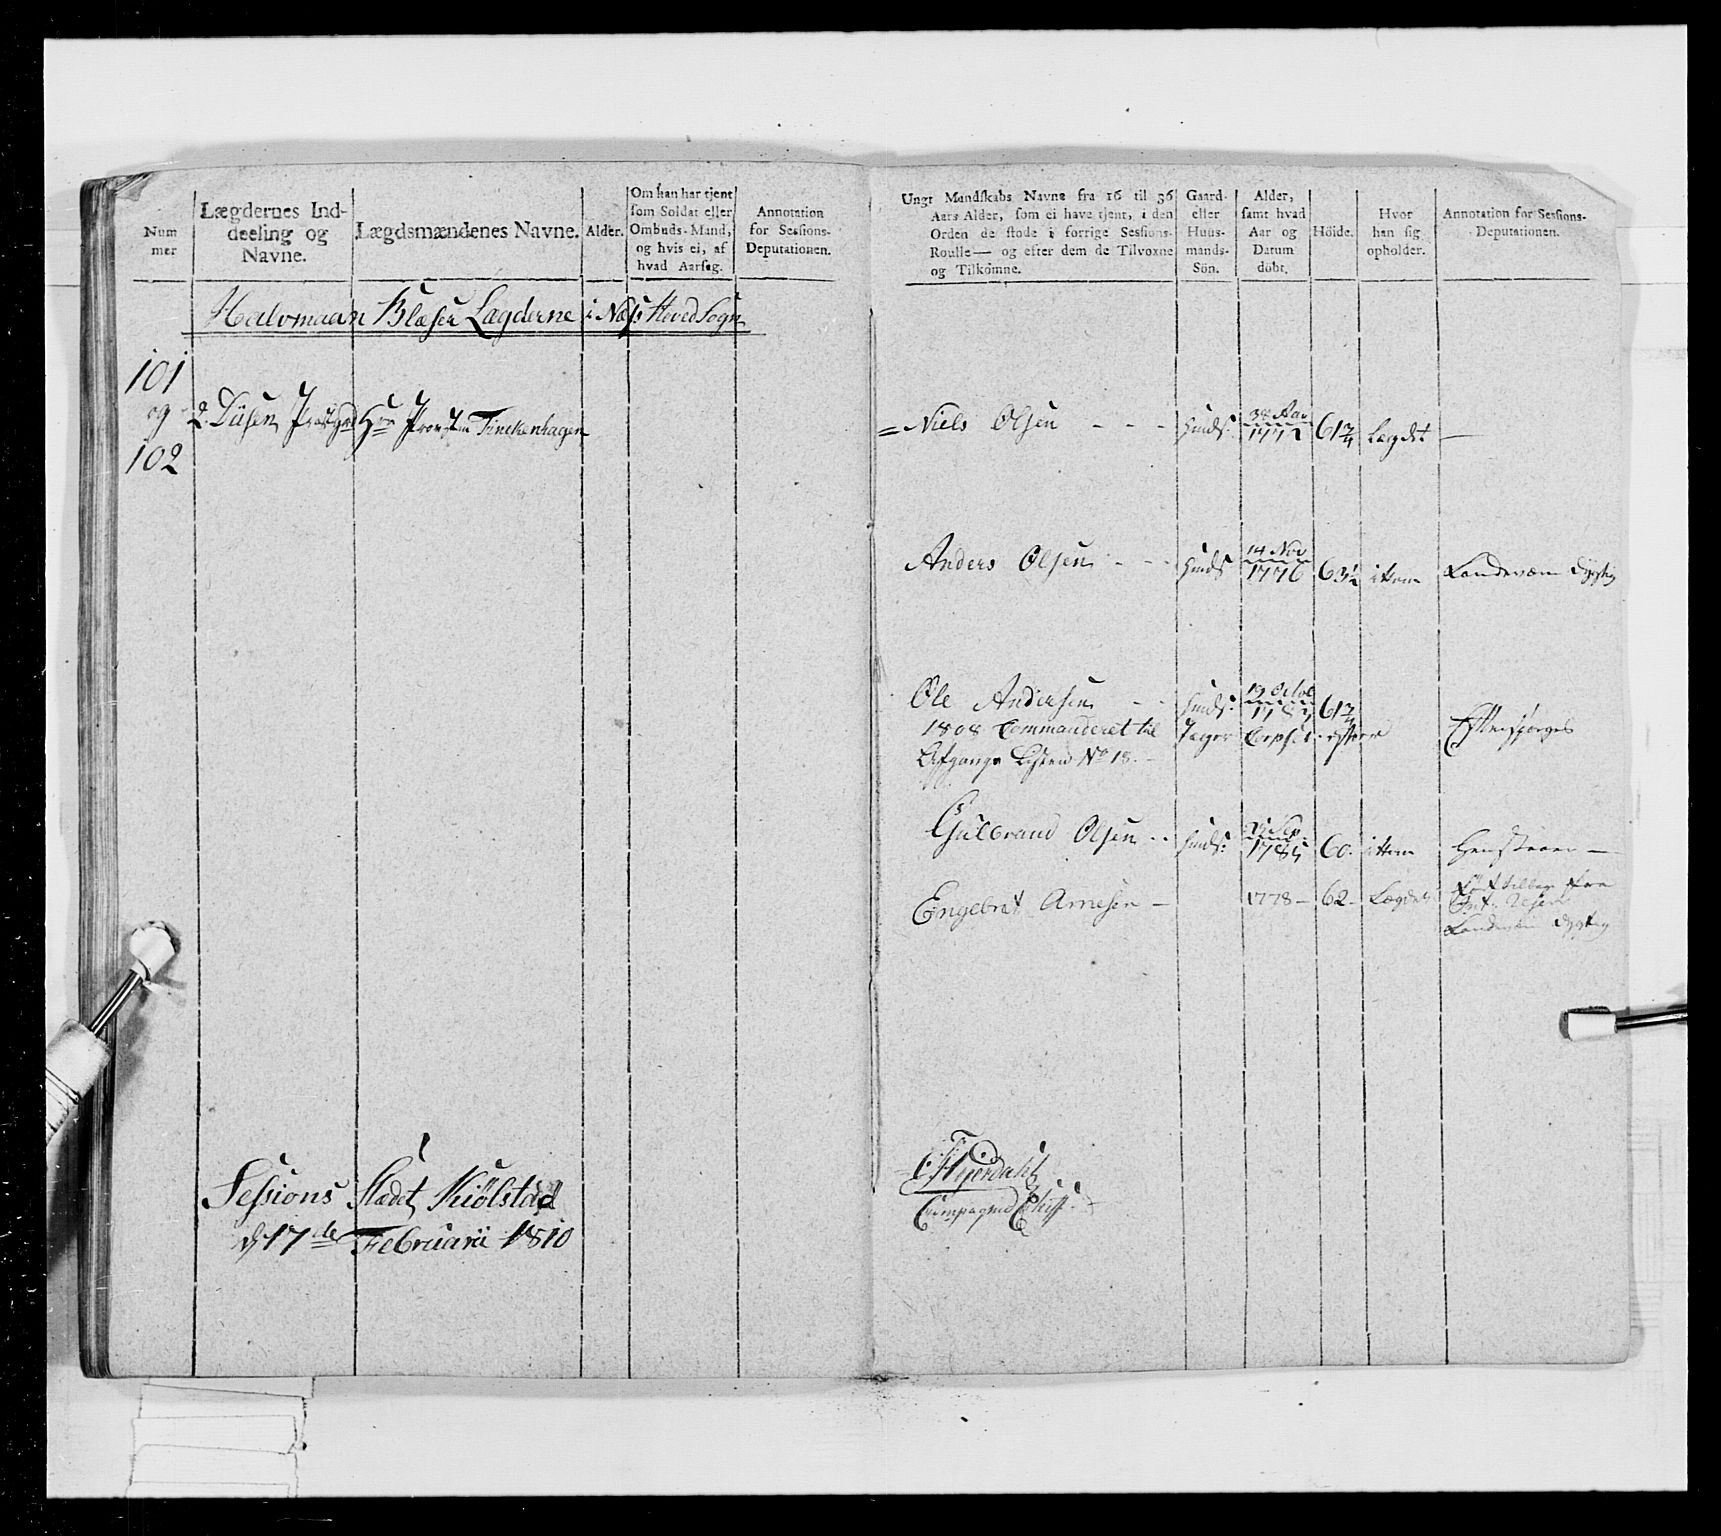 Num
mer
Lægdernes Ind-
deeling og
Navne.
Lægdsmændenes Navne.
Alder.
Om han har tjent
som Soldat eller
Ombuds-Mand,
og hvis ei, af
hvad Aarsag.
Annotation
for Sessions-
Deputationen.
Halvmaan Blæser Lægderne i Næs Hoved Sogn
101
og 2 Diisen Præstgrd Hr Provsten Finckenhagen
102
Sessions Stædet Kiølstad
d 17de Februarii 1810
Ungt Mandskabs Navne fra 16 til 36
Aars Alder, som ei have tjent, i den
Orden de stode i forrige Sessions-
Roulle — og efter dem de Tilvoxne
og Tilkomne.
Gaard-
eller
Huus-
mands-
Sön.
Alder,
samt hvad
Aar og
Datum
döbt.
Höide.
Hvor
han sig
opholder.
Annotation for Sessions-
Deputationen.
= Niels Olsen - - - 38 Aar 1772 61 3/4 Lægdet —
Anders Olsen - - - 14 Nov 1776 63 1/2 ittem Landeværn dygtig
Ole Andersen - - 19 Octob 61 3/4
1808 Commanderet til Jæger Corpset Efterspørges
Afgangs Listen No 18. -
Gulbrand Olsen - - Sep 1785 60. ittem
Engebret Arnesen — 1778 — 62 - Lægdet tilbage fra
Landeværn dygtig
Heyerdahl
Compagnie Chef